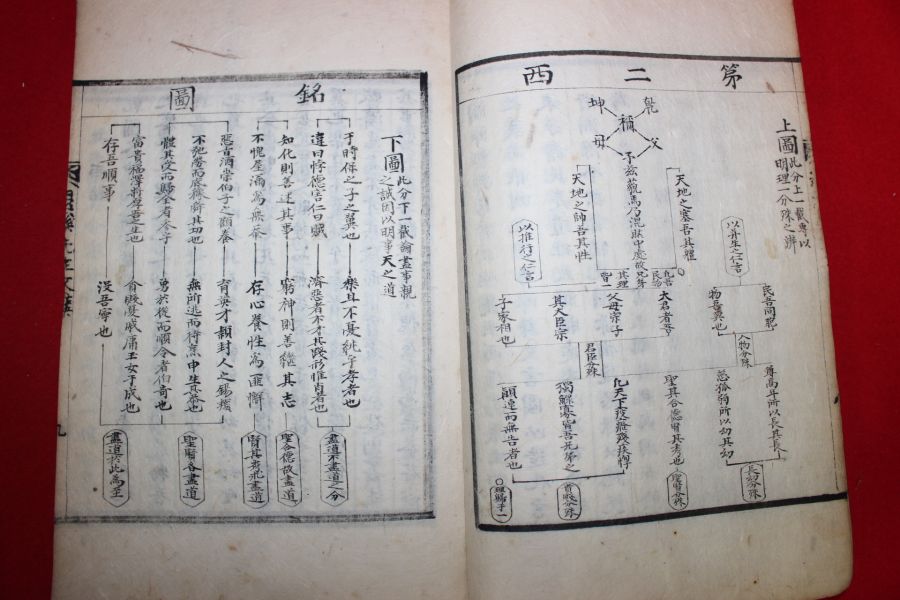 第二西
上圖
此分上一截專以
明理一分殊之辨
乾
父
坤
母
稱
予茲藐焉乃混然中處故
天地之塞吾其體
天地之帥吾其性
以推行之仁言
民吾同胞
物吾與也
大君者吾
父母宗子
其大臣宗
子家相也
人物分殊
君臣分殊
尊高年所以長其長
慈孤弱所以幼其幼
聖其合德賢其秀也
凡天下疲癃殘疾惸
獨鰥寡皆吾兄弟之
顚連而無告者也
長幼分殊
聖賢分殊
貴賤分殊
銘圖
下圖
此分下一截論盡事親
之誠因以明事天之道
于時保之子之翼也
樂且不憂純乎孝者也
違曰悖德害仁曰賊
濟惡者不才其踐形惟肖者也
知化則善述其事
窮神則善繼其志
不愧屋漏為無忝
存心養性為匪懈
惡旨酒崇伯子之顧養
育英才穎封人之錫類
不弛勞而底豫舜其功也
無所逃而待烹申生其恭也
體其受而歸全者參乎
勇於從而順令者伯奇也
富貴福澤將厚吾之生也
貧賤憂戚庸玉女于成也
存吾順事
沒吾寧也
盡道不盡道之分
聖合德故盡道
賢其秀求盡道
聖賢各盡道
盡道於此為至
九